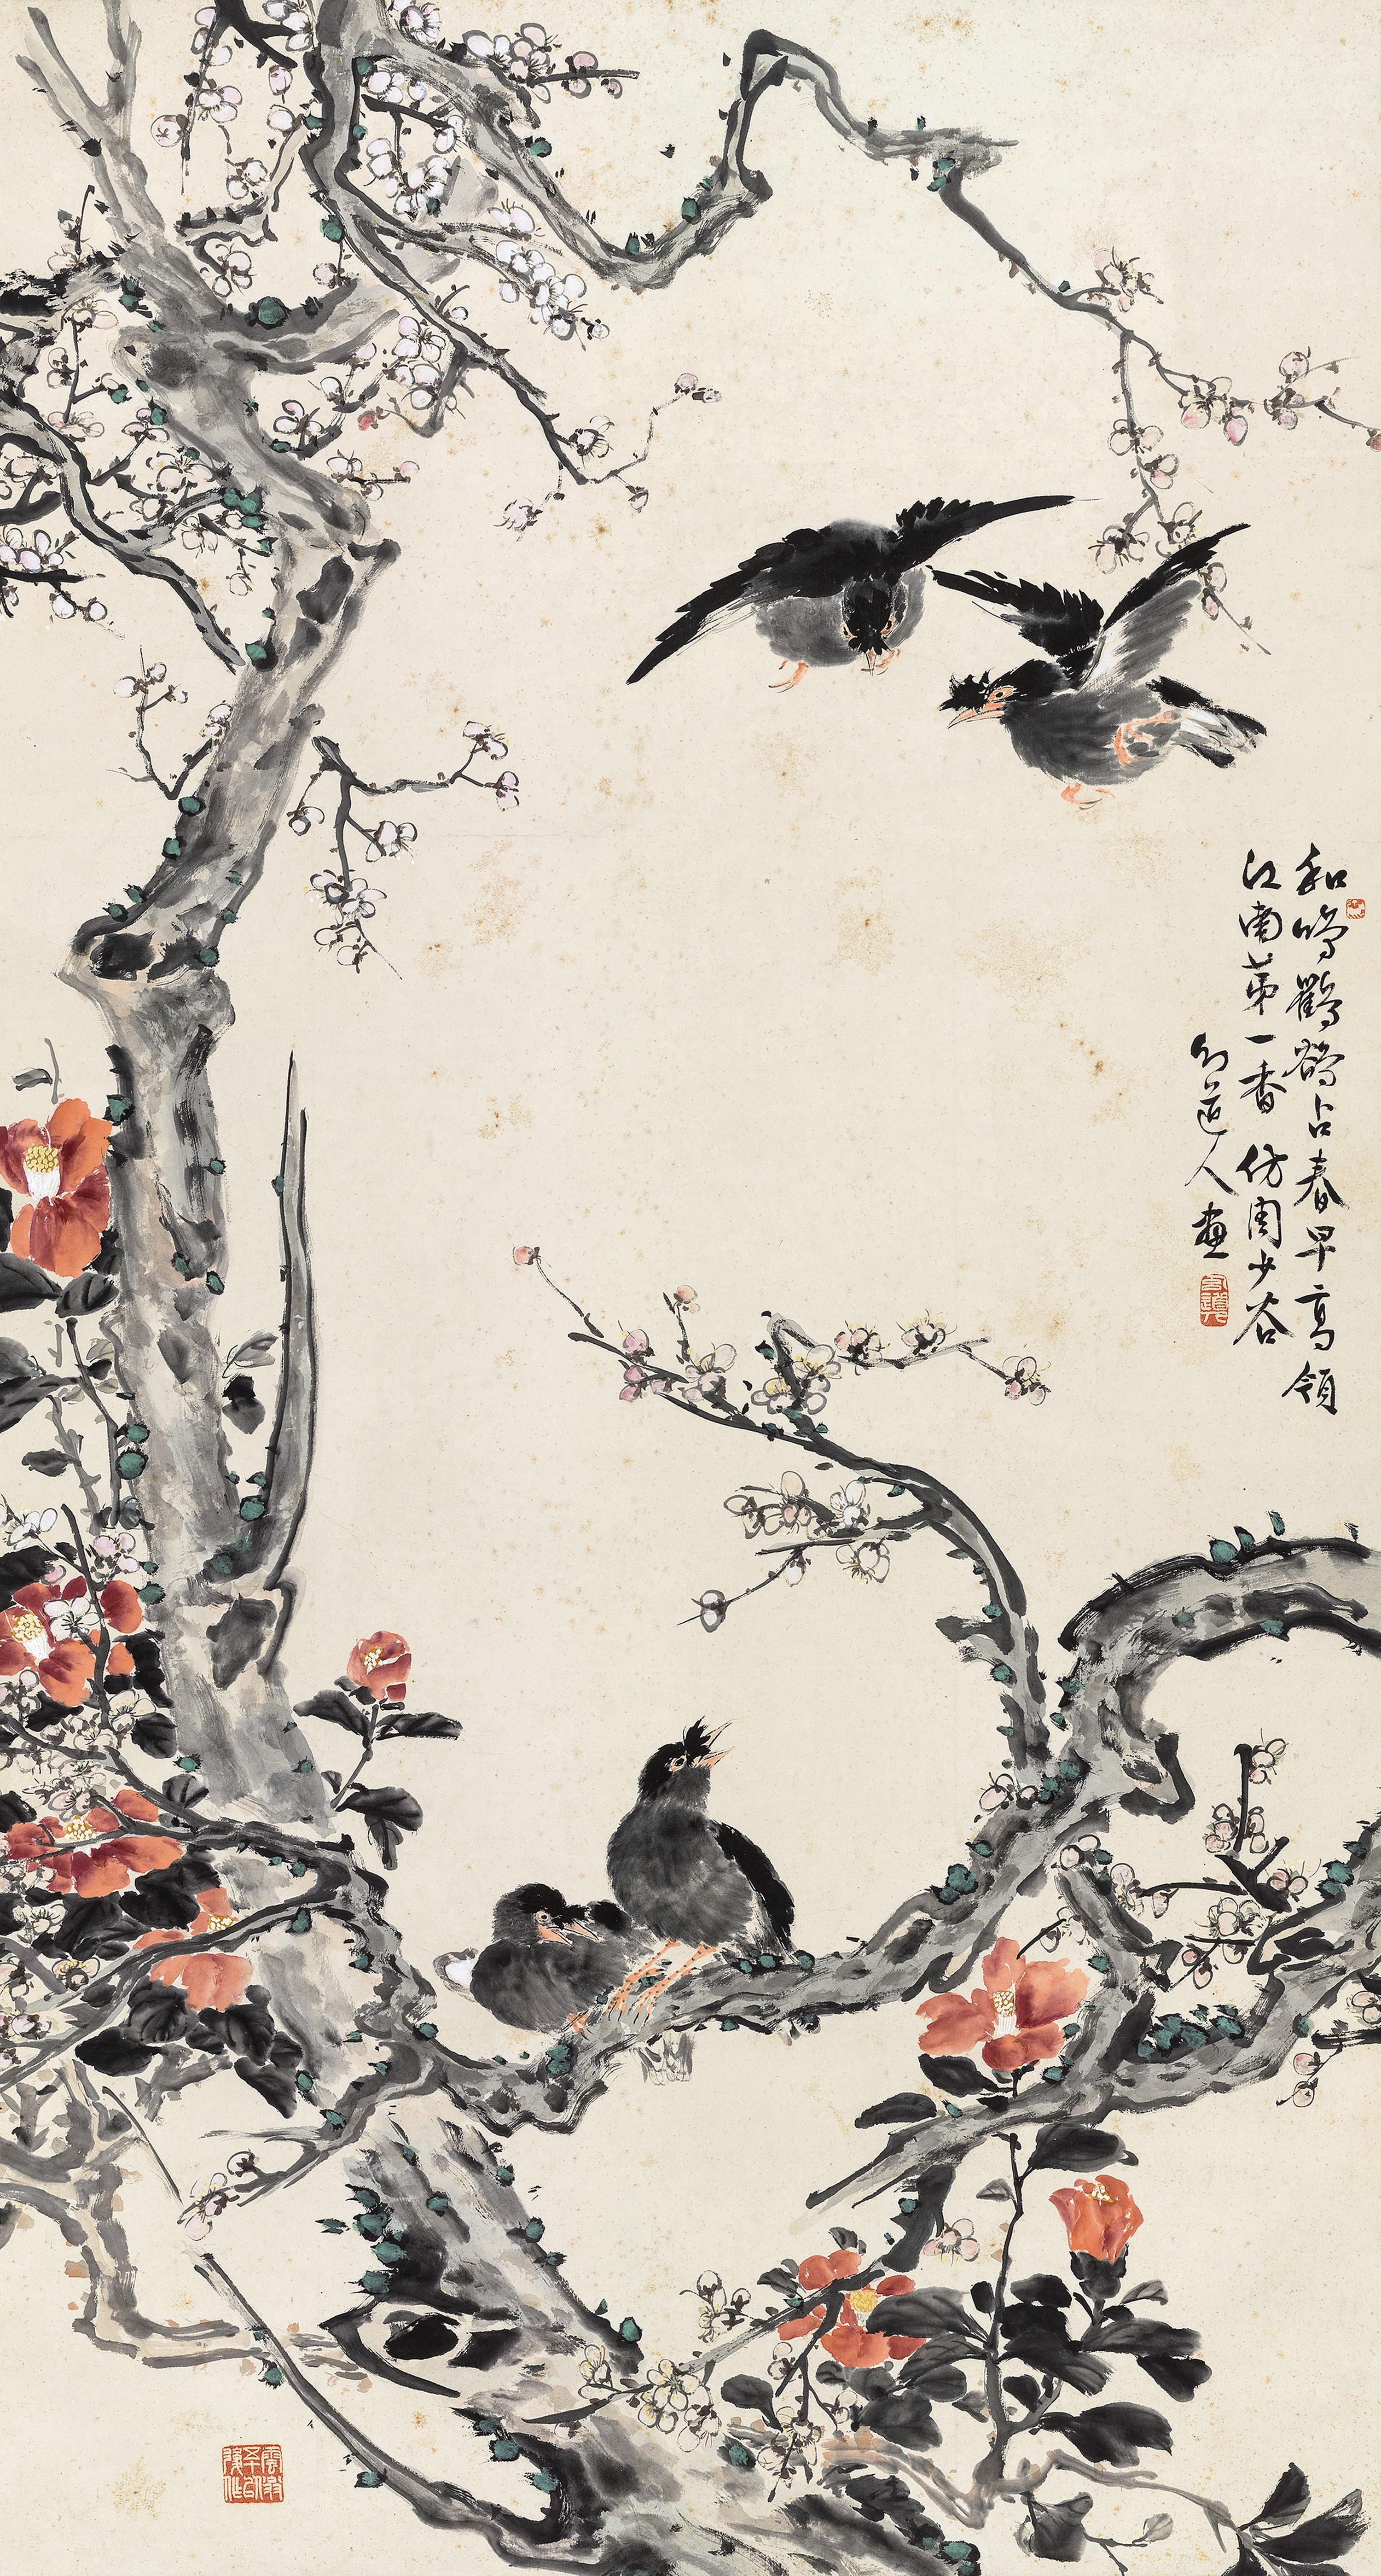 和鳴鸜鵒占春早高領
江南第一香 仿周少谷
道人畫